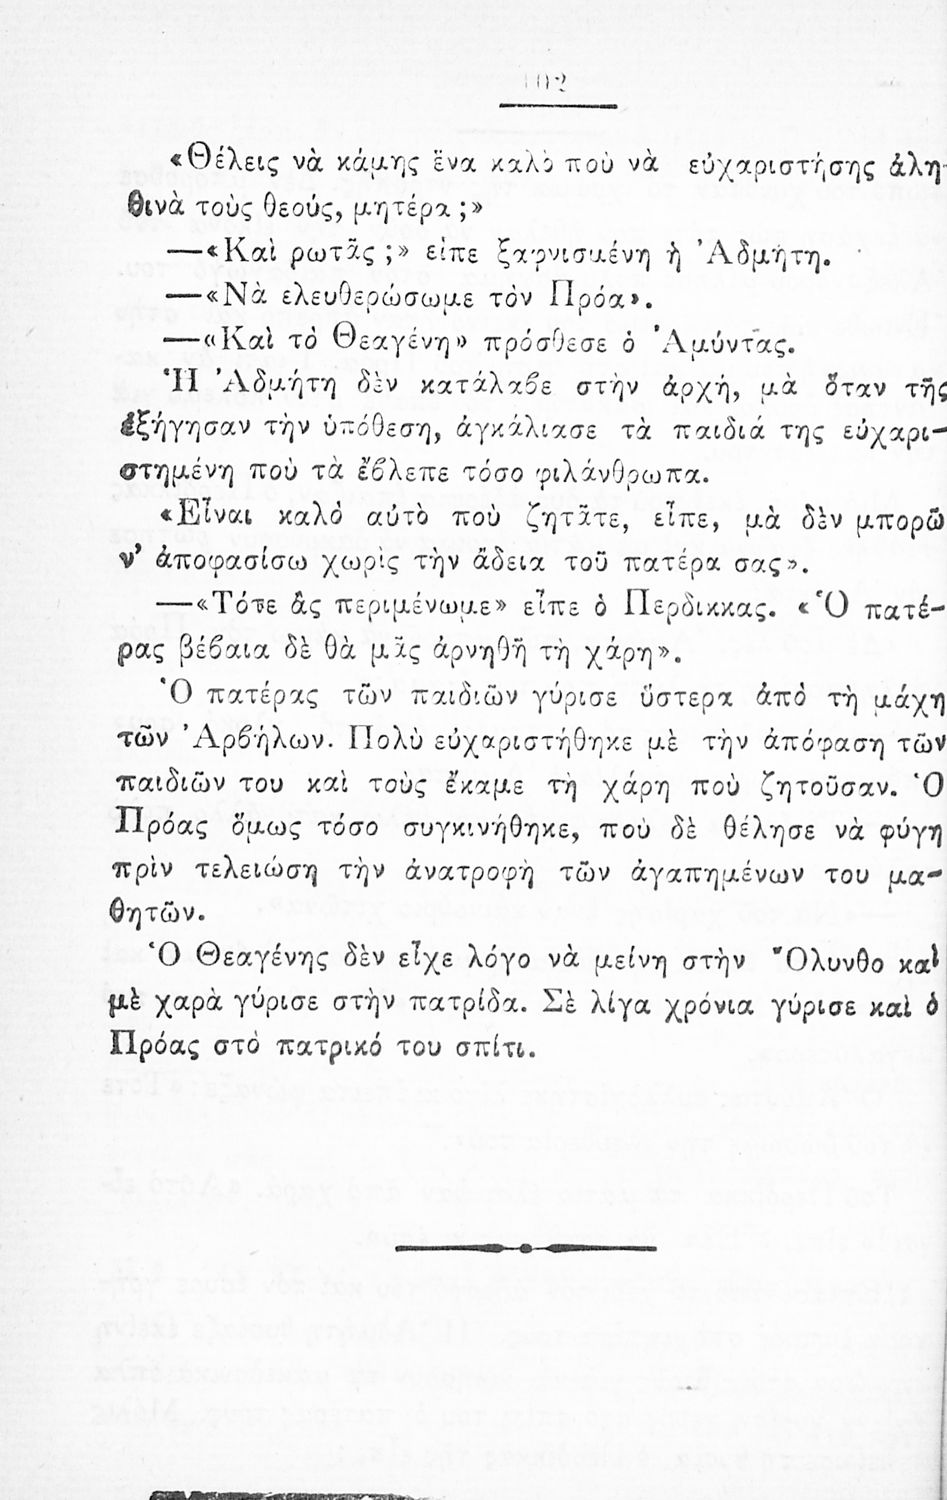 102
«Θέλεις νὰ κάμῃς ἕνα καλὸ ποὺ νὰ εὐχαριστήσῃς ἀλη-
θινὰ τοὺς θεούς, μητέρα ;»
—«Καὶ ρωτᾶς ;» εἶπε ξαφνισμένη ἡ Ἀδμήτη.
—«Νὰ ελευθερώσωμε τὸν Πρόα».
—«Καὶ τὸ Θεαγένη» πρόσθεσε ὁ Ἀμύντας.
Ἡ Ἀδμήτη δὲν κατάλαβε στὴν ἀρχή, μὰ ὅταν τῆς
ἐξήγησαν τὴν ὑπόθεση, ἀγκάλιασε τὰ παιδιά της εὐχαρι-
στημένη ποὺ τὰ ἔβλεπε τόσο φιλάνθρωπα.
«Εἶναι καλὸ αὐτὸ ποὺ ζητᾶτε, εἶπε, μὰ δὲν μπορῶ
ν’ ἀποφασίσω χωρὶς τὴν ἄδεια τοῦ πατέρα σας».
—«Τότε ἂς περιμένωμε» εἶπε ὁ Περδικκας. «Ὁ πατέ-
ρας βέβαια δὲ θὰ μᾶς ἀρνηθῇ τὴ χάρη».
Ὁ πατέρας τῶν παιδιῶν γύρισε ὕστερα ἀπὸ τὴ μάχη
τῶν Ἀρβήλων. Πολὺ εὐχαριστήθηκε μὲ τὴν ἀπόφαση τῶν
παιδιῶν του καὶ τοὺς ἔκαμε τὴ χάρη ποὺ ζητοῦσαν. Ὁ
Πρόας ὅμως τόσο συγκινήθηκε, ποὺ δὲ θέλησε νὰ φύγῃ
πρὶν τελειώσῃ τὴν ἀνατροφὴ τῶν ἀγαπημένων του μα-
θητῶν.
Ὁ Θεαγένης δὲν εἶχε λόγο νὰ μείνῃ στὴν Ὄλυνθο καὶ
μὲ χαρὰ γύρισε στὴν πατρίδα. Σὲ λίγα χρόνια γύρισε καὶ ὁ
Πρόας στὸ πατρικό του σπίτι.